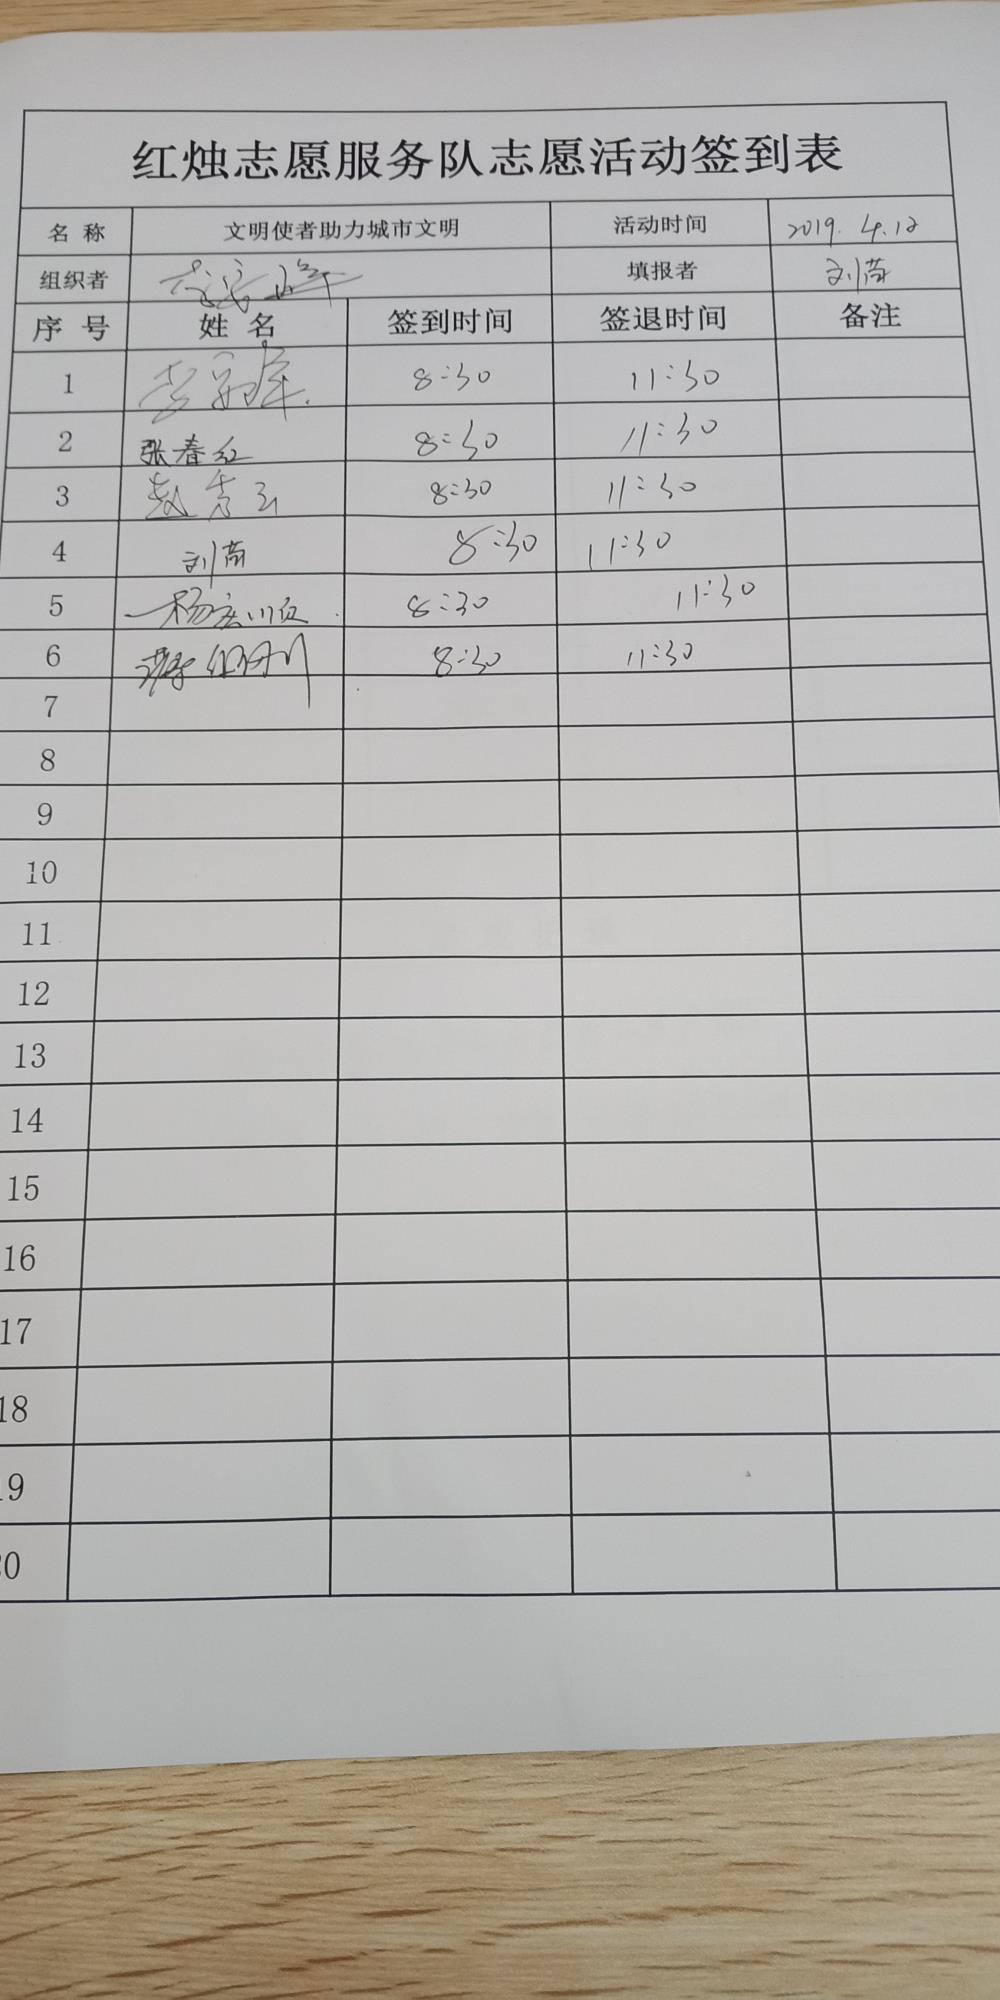 红烛志愿服务队志愿活动签到表
名 称 文明使者助力城市文明 活动时间 2019. 4.12
组织者 填报者 刘
序 号 姓 名 签到时间 签退时间 备注
1 李 8:30 11:30
2 张春红 8:30 11:30
3 赵秀玉 8:30 11:30
4 刘 8:30 11:30
5 杨 8:30 11:30
6 8:30 11:30
7
8
9
10
11
12
13
14
15
16
17
18
19
20